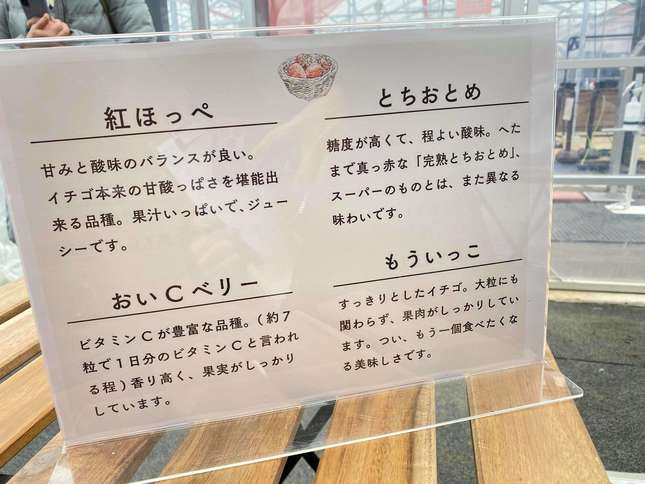 紅ほっぺ
甘みと酸味のバランスが良い。
イチゴ本来の甘酸っぱさを堪能出
来る品種。果汁いっぱいで、ジュー
シーです。
とちおとめ
糖度が高くて、程よい酸味。へた
まで真っ赤な「完熟とちおとめ」、
スーパーのものとは、また異なる
味わいです。
おいCベリー
ビタミンCが豊富な品種。(約7
粒で1日分のビタミンCと言われ
る程)香り高く、果実がしっかり
しています。
もういっこ
すっきりとしたイチゴ。大粒にも
関わらず、果肉がしっかりしてい
ます。つい、もう一個食べたくな
る美味しさです。